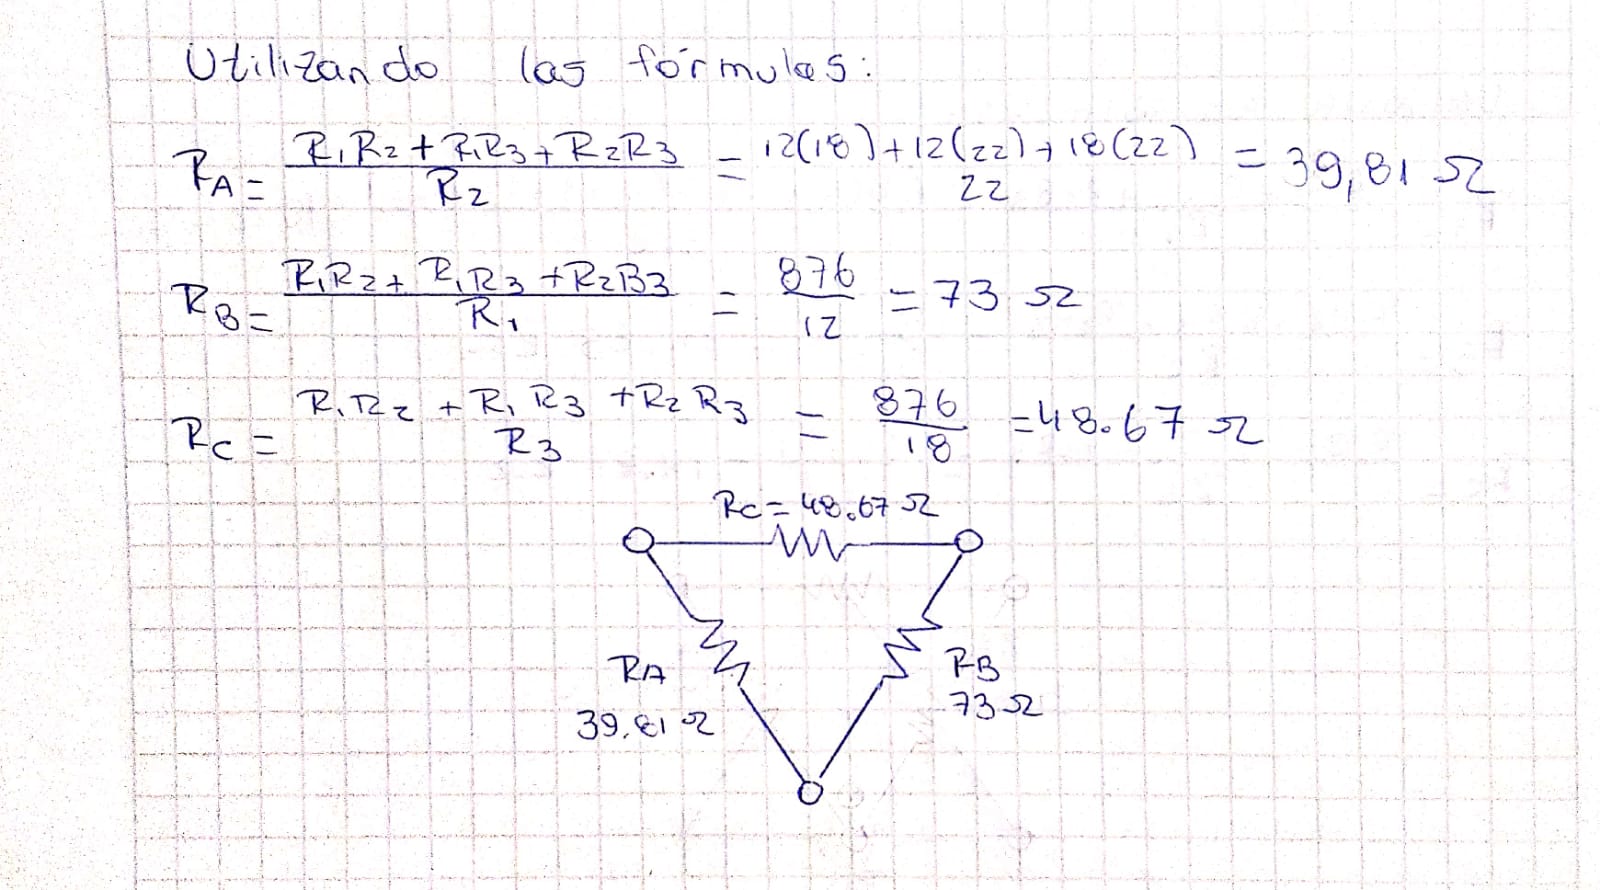 Utilizando las fórmulas:
RA = R1R2 + R1R3 + R2R3 / R2 = 12(18) + 12(22) + 18(22) / 22 = 39,81 Ω
RB = R1R2 + R1R3 + R2B3 / R1 = 876 / 12 = 73 Ω
RC = R1R2 + R1R3 + R2R3 / R3 = 876 / 18 = 48.67 Ω
RC = 48.67 Ω
RA
39.81 Ω
RB
73 Ω